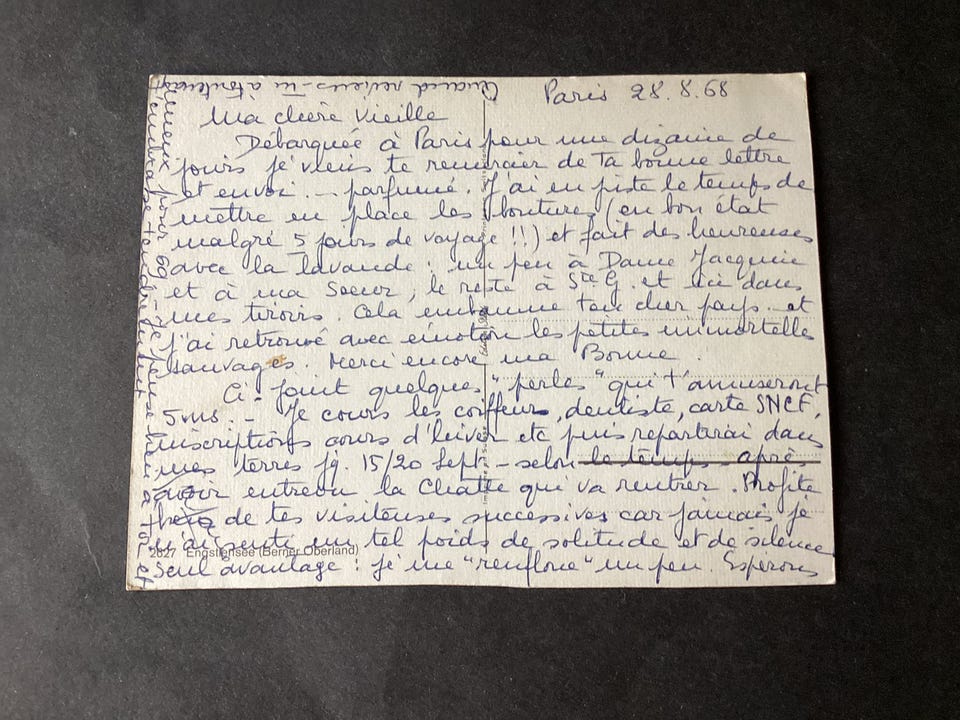 Paris 28.8.68
Ma chère Vieille
Débarquée à Paris pour une dizaine de
jours je viens te remercier de ta bonne lettre
et envoi - parfumé. J'ai eu juste le temps de
mettre en place les boutures (en bon état
malgré 5 jours de voyage !!) et fait des heureuses
avec la lavande : un peu à Dame Jacquine
et à ma Soeur, le reste à Ste G. et ici dans
mes tiroirs. Cela embaume ton cher pays et
j'ai retrouvé avec émotion les petites immortelles
sauvages. Merci encore ma Bonne.
Ci-joint quelques "perles" qui t'amuseront
5 ms. - Je cours les coiffeur, dentiste, carte SNCF,
inscriptions cours d'hiver etc puis repartirai dans
mes terres jq. 15/20 Sept - selon le temps - après
avoir entrevu la Chatte qui va rentrer. Profite
de tes visiteuses successives car jamais je
n'ai senti un tel poids de solitude et de silence
seul avantage : je me "renfloue" un peu. Espérons
mieux pour 69 - Je pense bien à toi et
t'embrasse tendrement
Quand reviens-tu à
2627 Engstlensee (Berner Oberland)